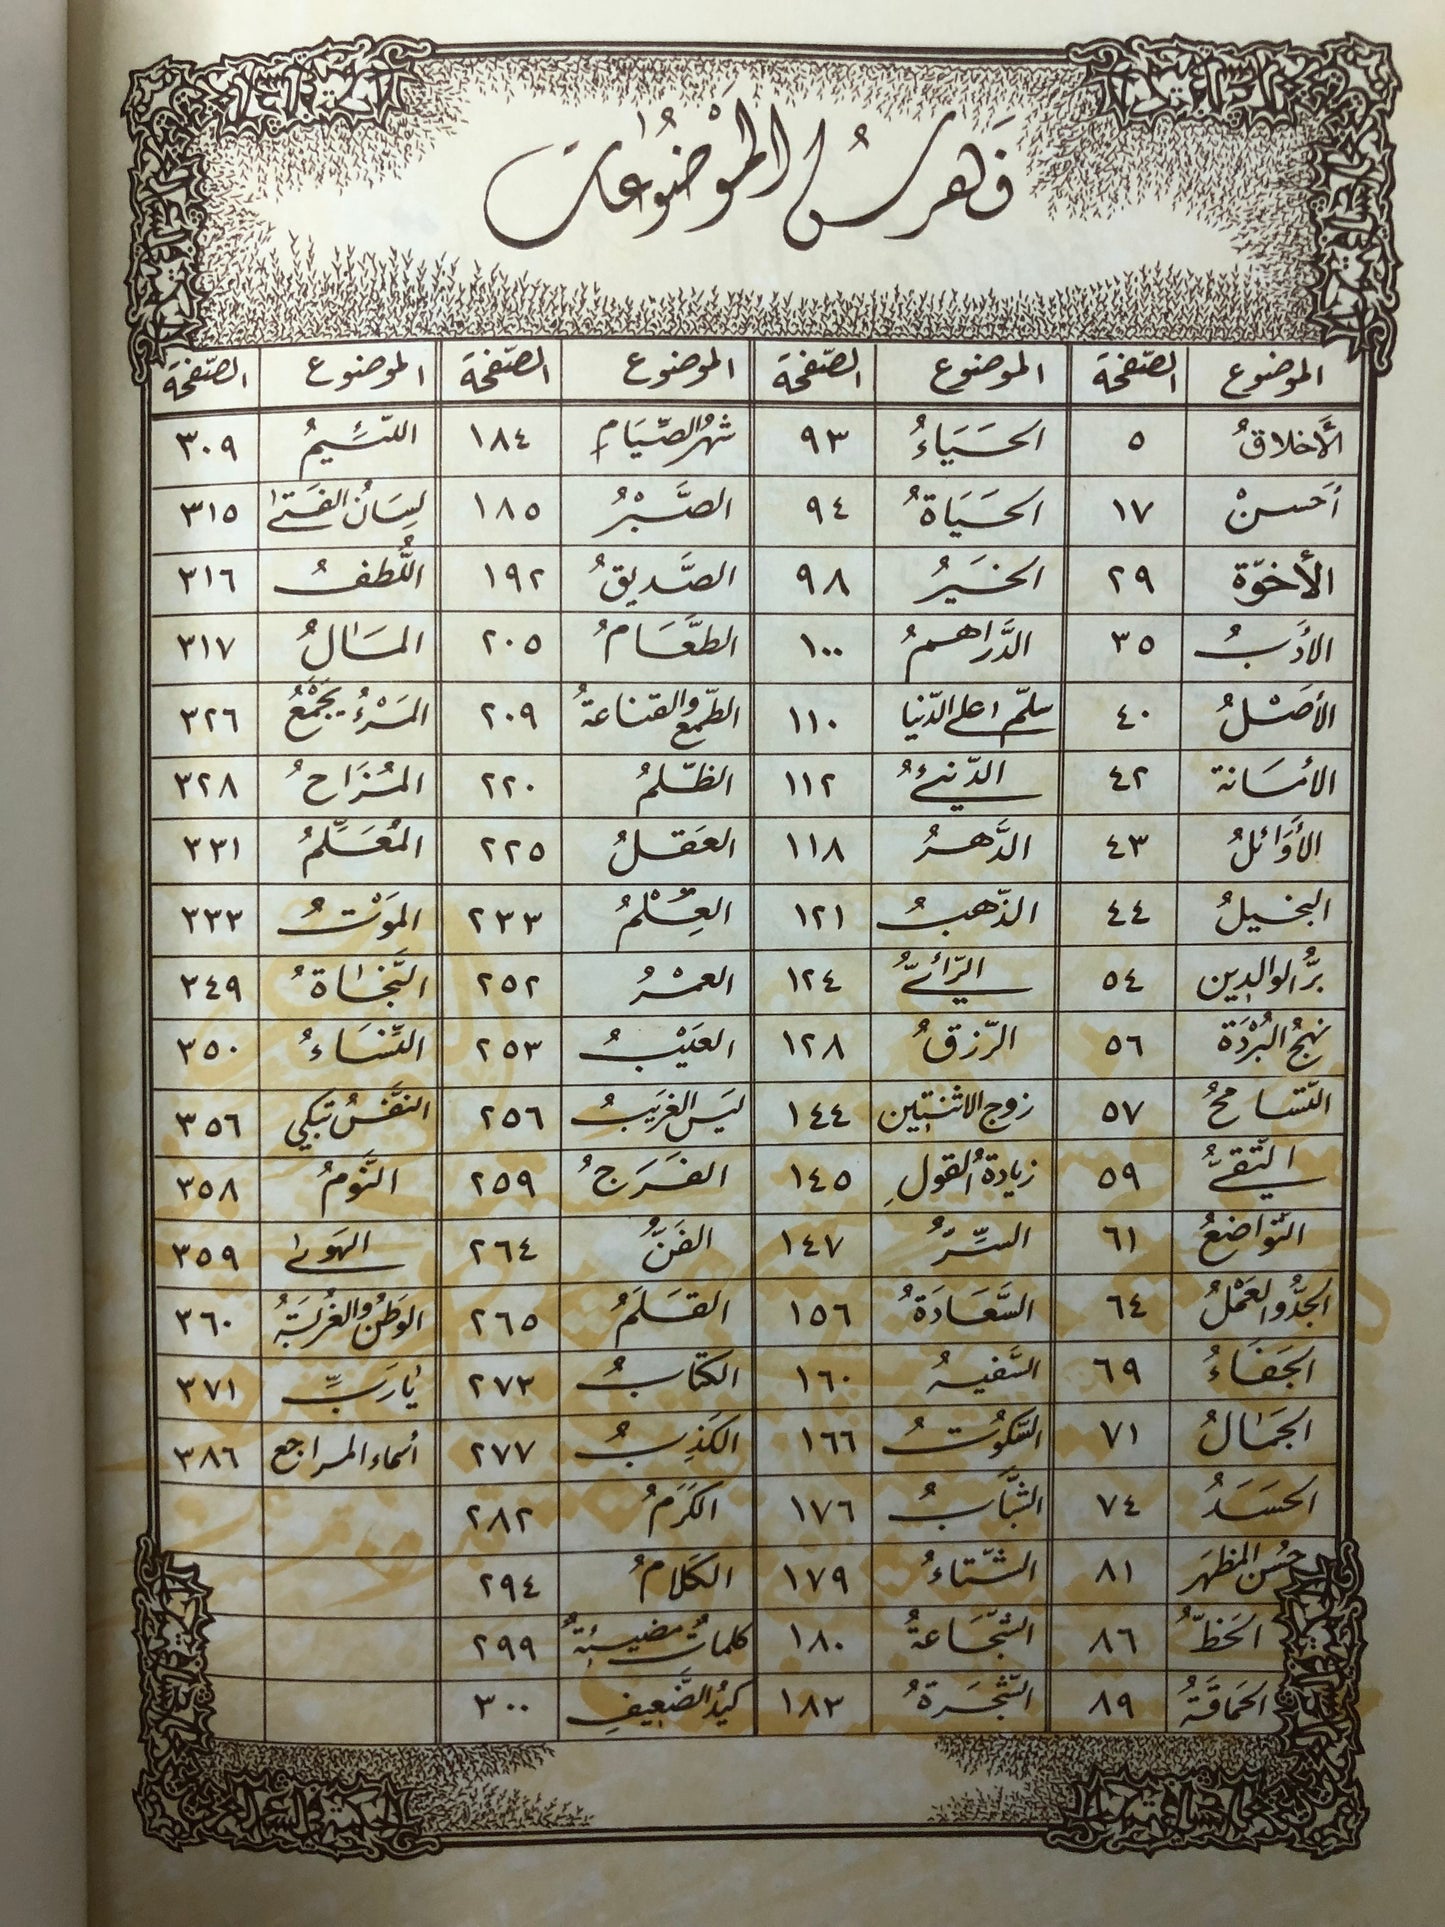 فَهرسُ المَوْضُوعات
الموضوع الصّفحة الموضوع الصّفحة الموضوع الصّفحة الموضوع الصّفحة
الأَخلاقُ ٥ الحَيَاءُ ٩٣ شهرُ الصِّيَامِ ١٨٤ اللّئيمُ ٣٠٩
أحسنْ ١٧ الحَيَاةُ ٩٤ الصَّبْرُ ١٨٥ لِسَانُ الفَتىٰ ٣١٥
الأخوّة ٢٩ الخَيرُ ٩٨ الصَّديقُ ١٩٢ اللُّطفُ ٣١٦
الأدَبُ ٣٥ الدَّراهمُ ١٠٠ الطعَّامُ ٢٠٥ المَالُ ٣١٧
الأصَلُ ٤٠ سلّم على الدّنيا ١١٠ الطّمع والقناعةُ ٢٠٩ المَرْءُ يَجْمَعُ ٣٢٦
الأمَانة ٤٢ الدّنيءُ ١١٢ الظّلمُ ٢٢٠ المُزَاحُ ٣٢٨
الأَوَائلُ ٤٣ الدَّهرُ ١١٨ العَقلُ ٢٢٥ المُعَلّمُ ٣٣١
البخيلُ ٤٤ الذّهبُ ١٢١ العِلْمُ ٢٣٣ المَوْتُ ٣٣٣
برُّ الوالدين ٥٤ الرّأيُ ١٢٤ العمْرُ ٢٥٢ النَّجَاةُ ٣٤٩
نهجُ البُرْدَة ٥٦ الرّزقُ ١٢٨ العَيْبُ ٢٥٣ النّسَاءُ ٣٥٠
التّسامحُ ٥٧ زوج الاثنتين ١٤٤ ليسَ الغريبُ ٢٥٦ النفَّسُ تبكي ٣٥٦
التّقيُّ ٥٩ زيادةُ القولِ ١٤٥ الفَرَجُ ٢٥٩ النَّومُ ٣٥٨
التّواضعُ ٦١ السِّرُّ ١٤٧ الفَنُّ ٢٦٤ الهَوىٰ ٣٥٩
الجدُّ والعَمْلُ ٦٤ السَّعَادَةُ ١٥٦ القَلَمُ ٢٦٥ الوَطَنُ والغُربَةُ ٣٦٠
الجَفَاءُ ٦٩ السَّفيهُ ١٦٠ الكتابُ ٢٧٣ يا رَبِّ ٣٧١
الجَمَالُ ٧١ السَّكوُتُ ١٦٦ الكَذِبُ ٢٧٧ أسماء المراجع ٣٨٦
الحسَدُ ٧٤ الشَّبابُ ١٧٦ الكَرَمُ ٢٨٢
حُسْن المظهَر ٨١ الشّتاءُ ١٧٩ الكَلامُ ٢٩٤
الحَظّ ٨٦ الشّجَاعةُ ١٨٠ كلماتٌ مضيئةٌ ٢٩٩
الحَماقَةُ ٨٩ الشّجَرَةُ ١٨٣ كيدُ الضَّعيفِ ٣٠٠